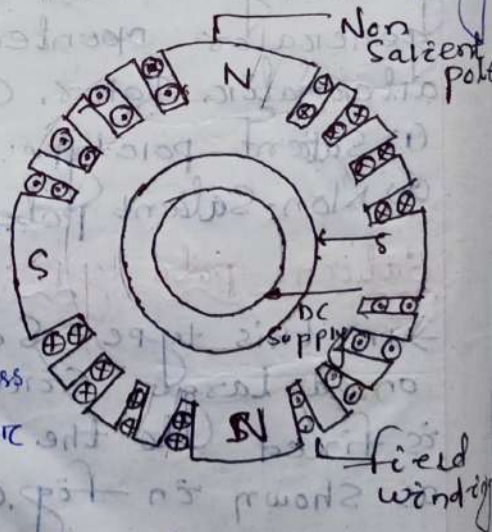 Non
Salient
pole
N
S
S
DC
supply
N
field
winding